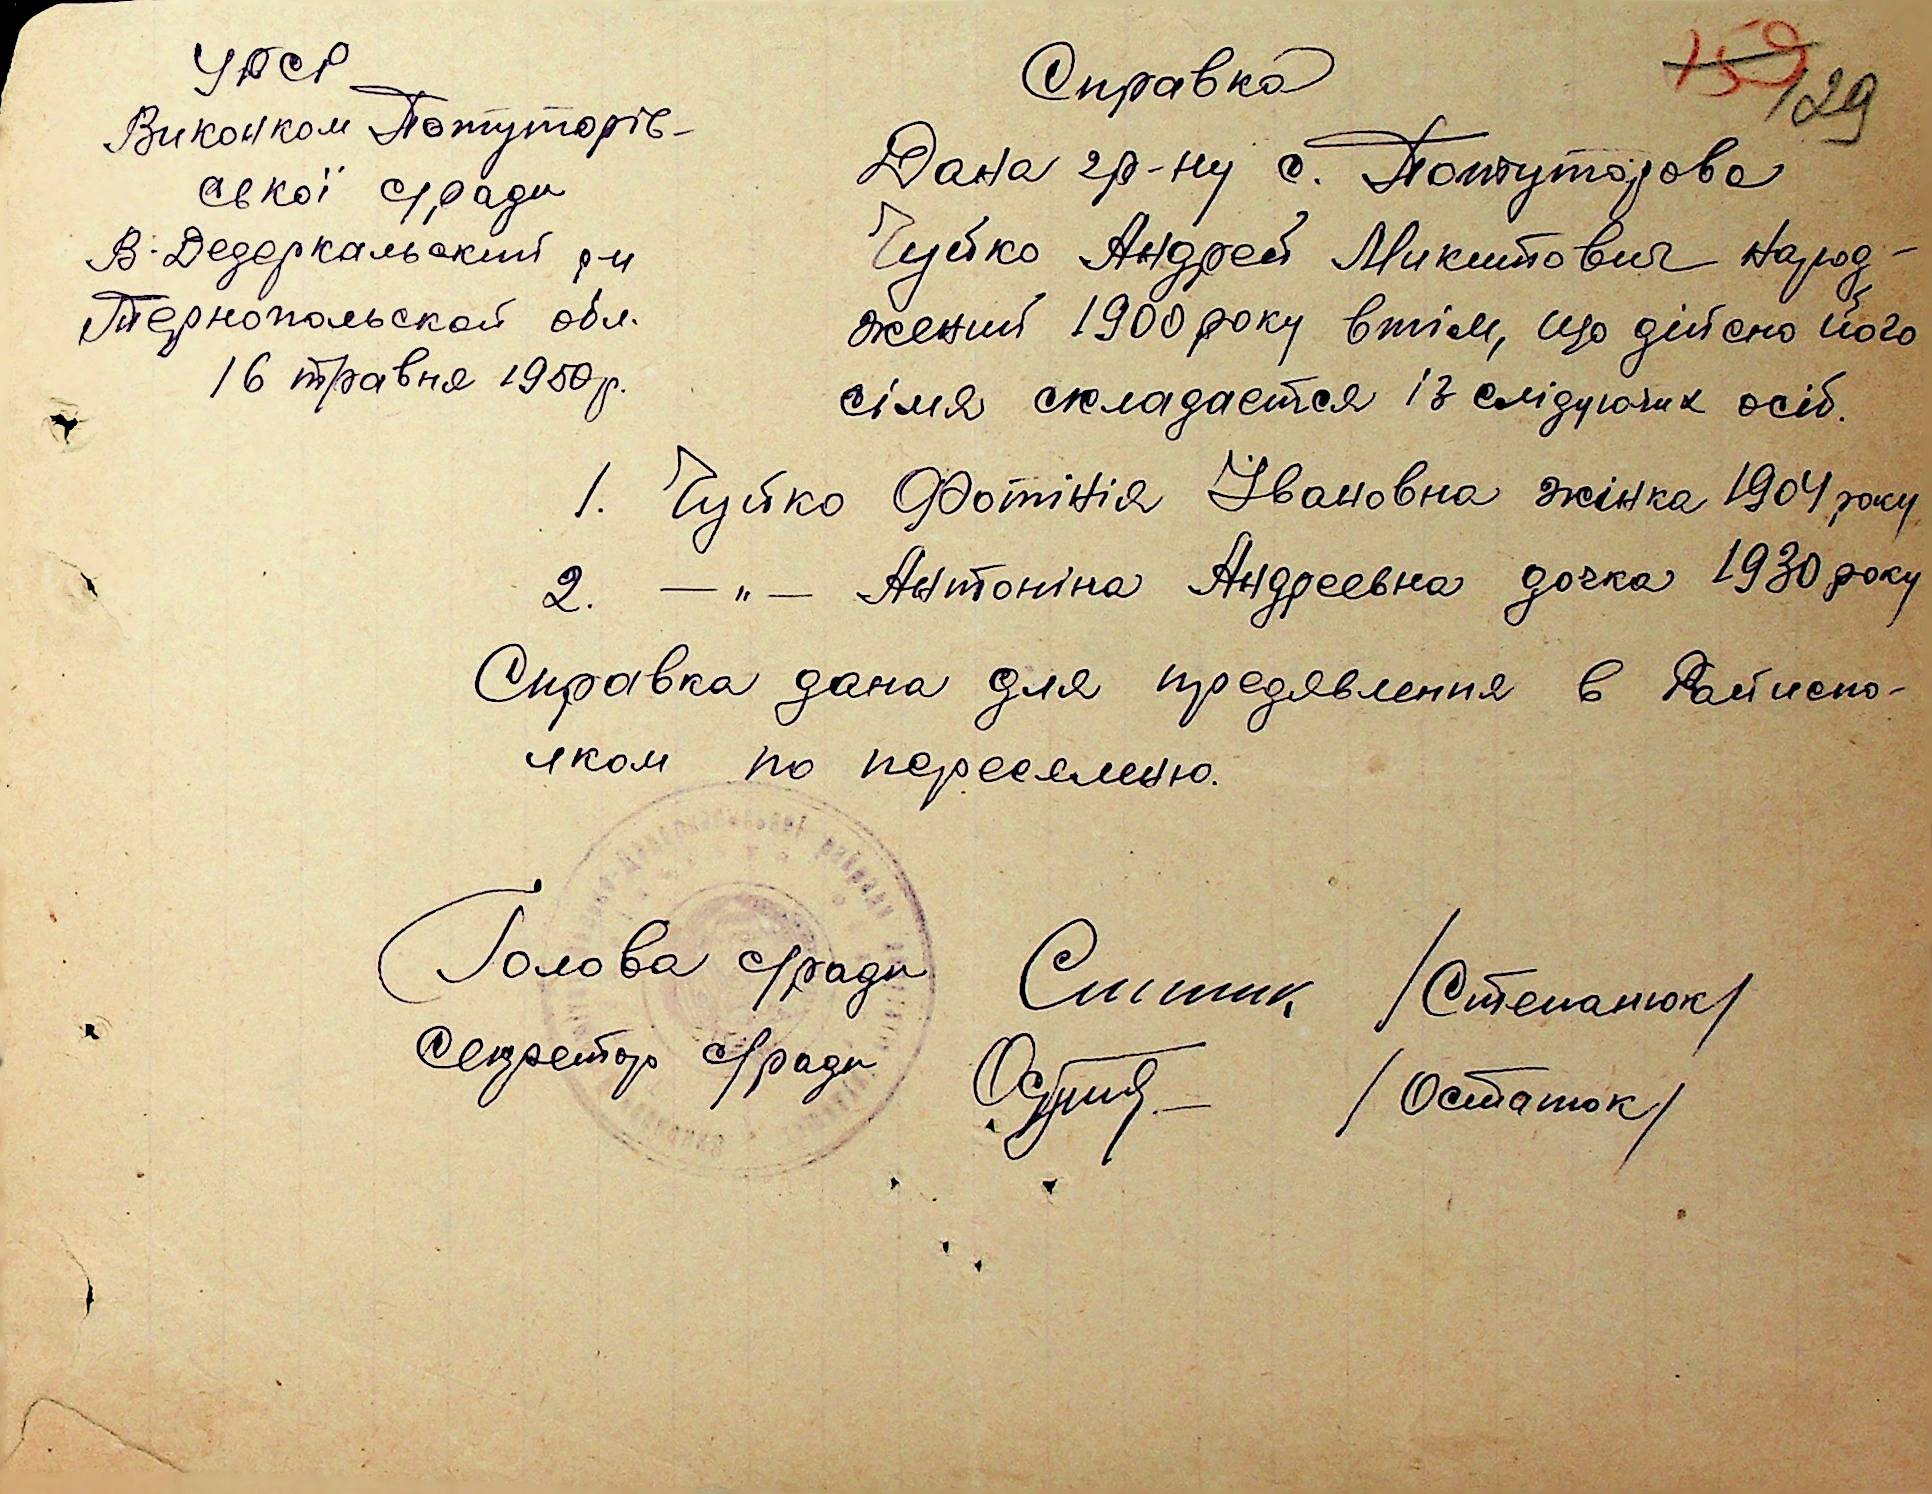 УРСР
Виконком Потуторів-
ської с/ради
В-Дедеркальський р-н
Тернопольской обл.
16 травня 1950р.
159
129
Справка
Дана гр-ну с. Потуторово
Чуйко Андрей Микитович народ-
жений 1900 року втім, що дійсно його
сімя складается із слідуючих осіб.
1. Чуйко Фотінія Івановна жінка 1904 року
2. — „ — Антоніна Андреевна дочка 1930 року
Справка дана для предявлення в Райиспо-
лком по переселеню.
Голова с/ради /Степанюк/
Секретар с/ради /Остатюк/